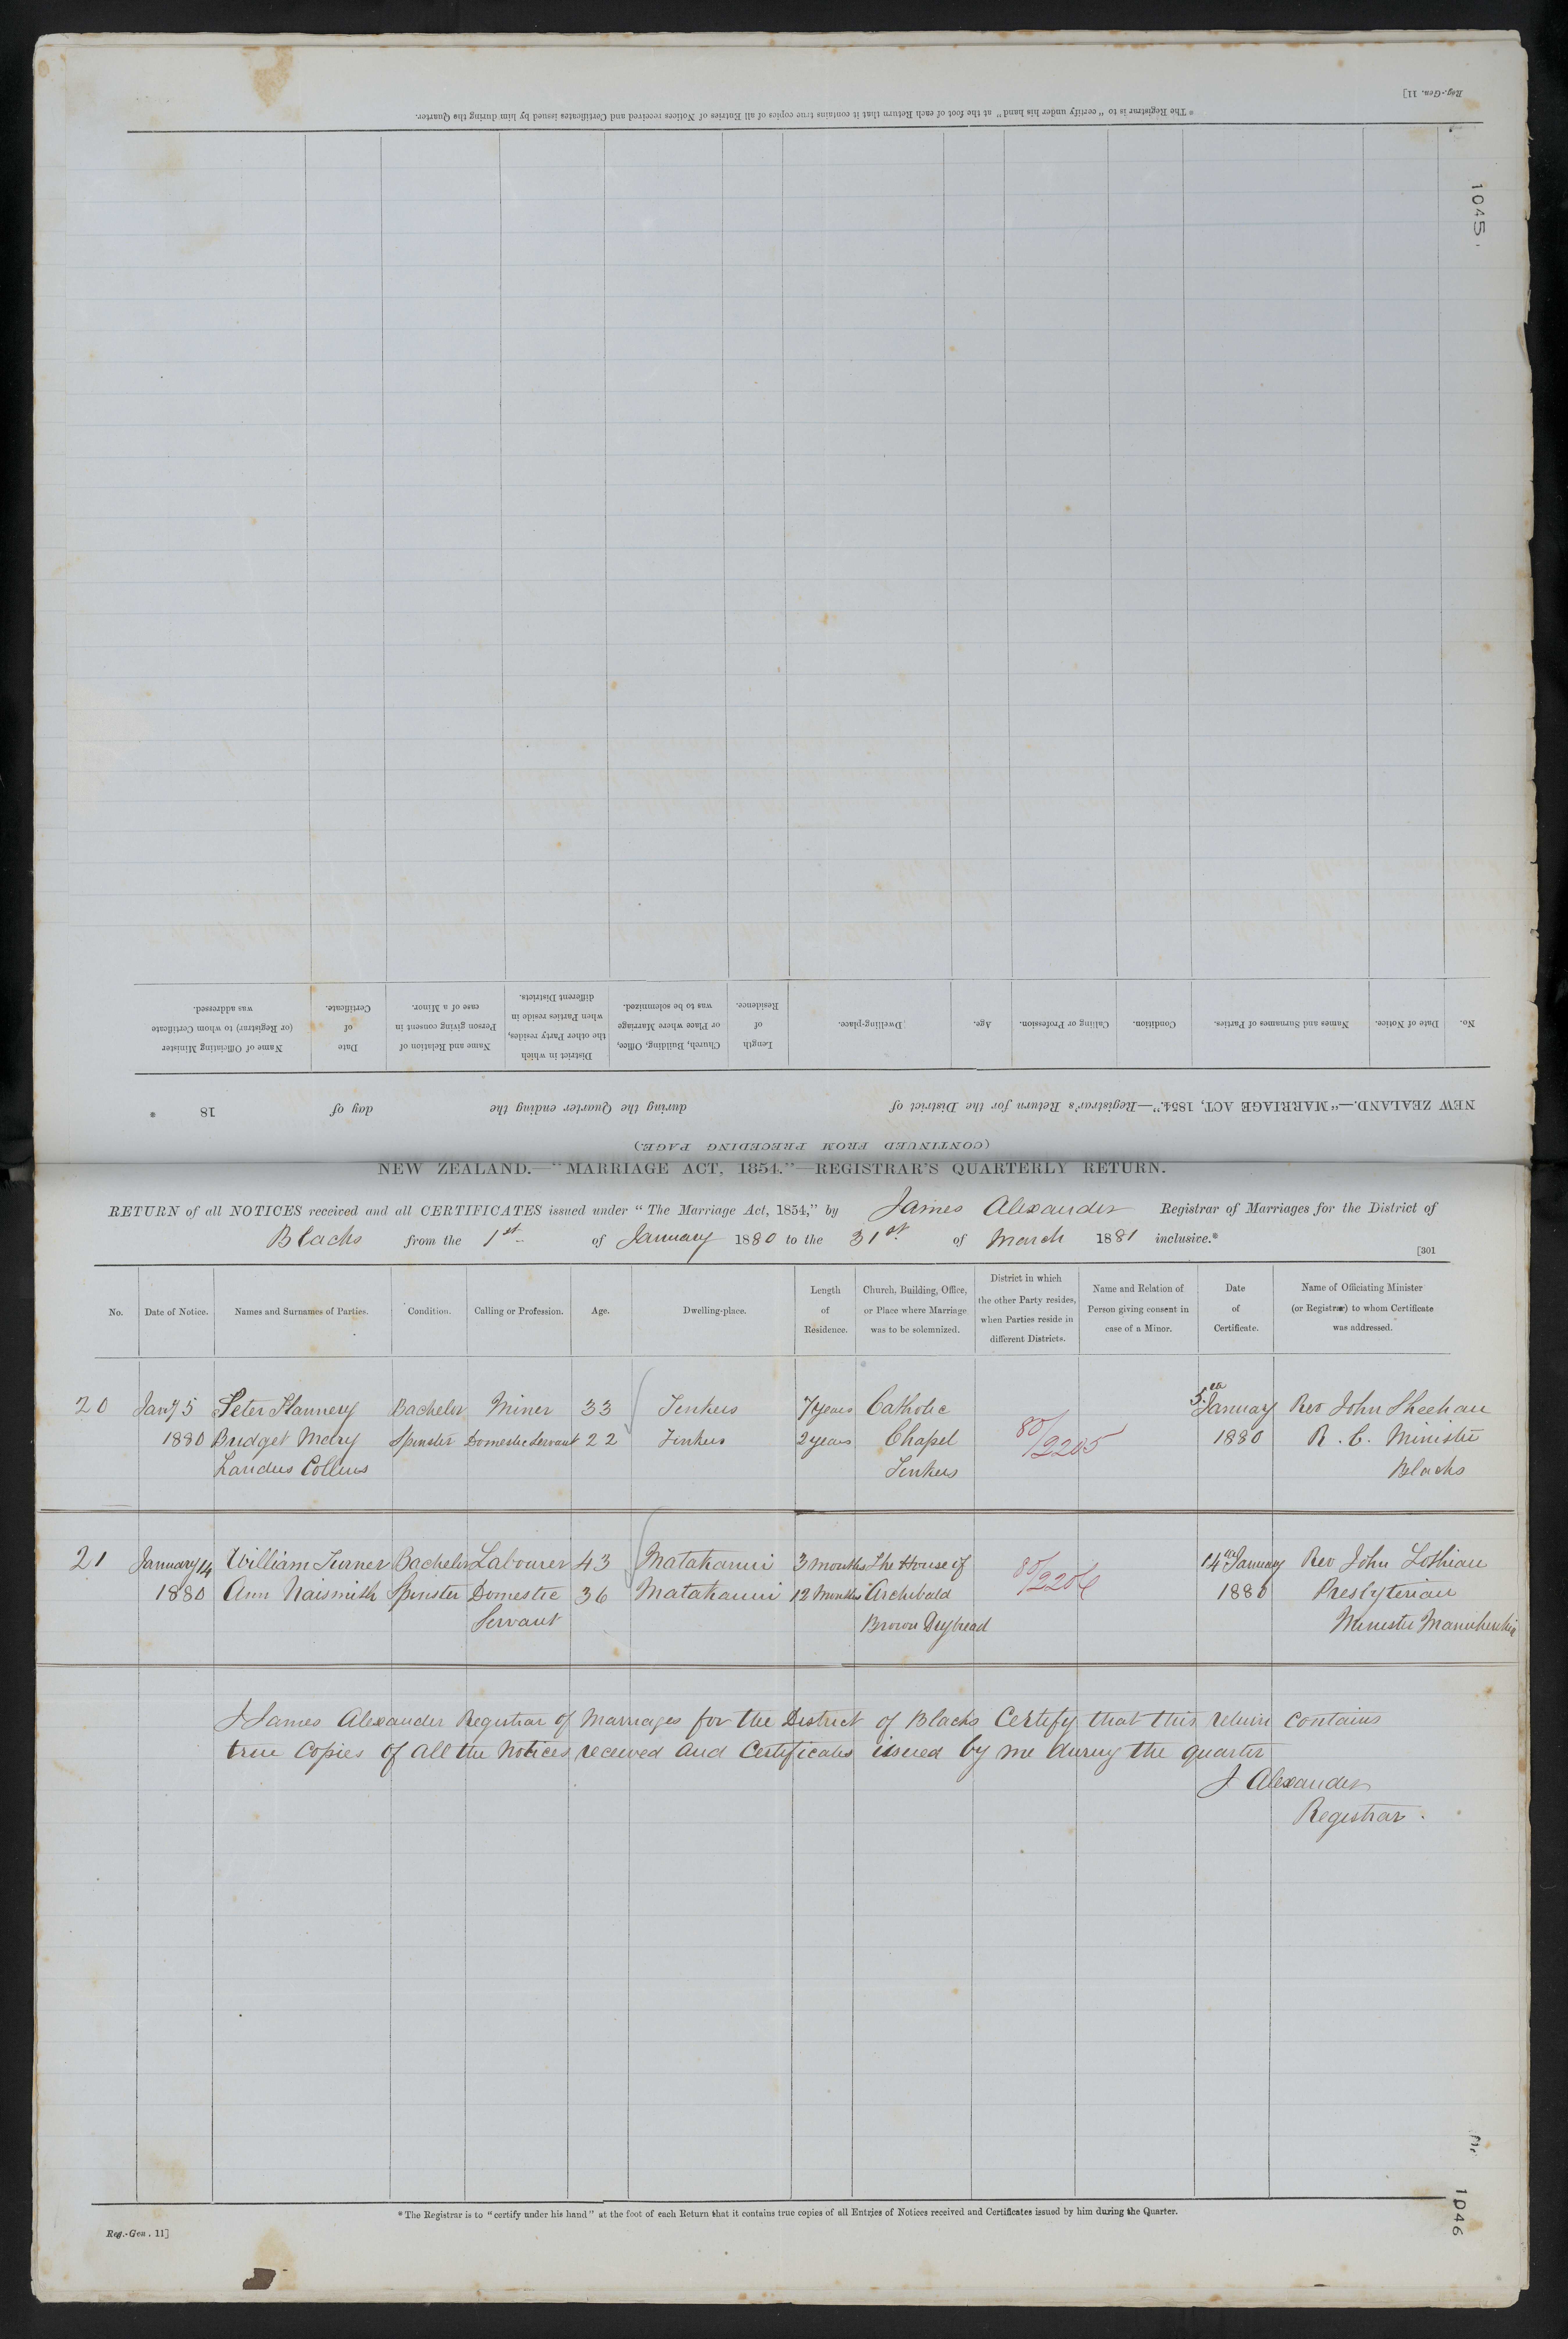 Reg.-Gen. 11]
* The Registrar is to "certify under his hand" at the foot of each Return that it contains true copies of all Entries of Notices received and Certificates issued by him during the Quarter.
1045
(CONTINUED FROM PRECEDING PAGE.)
NEW ZEALAND.—"MARRIAGE ACT, 1854."—Registrar's Return for the District of during the Quarter ending the day of 18 .
No. Date of Notice. Names and Surnames of Parties. Condition. Calling or Profession. Age. Dwelling-place. Length of Residence. Church, Building, Office, or Place where Marriage was to be solemnized. District in which the other Party resides, when Parties reside in different Districts. Name and Relation of Person giving consent in case of a Minor. Date of Certificate. Name of Officiating Minister (or Registrar) to whom Certificate was addressed.
NEW ZEALAND.—"MARRIAGE ACT, 1854."—REGISTRAR'S QUARTERLY RETURN.
RETURN of all NOTICES received and all CERTIFICATES issued under "The Marriage Act, 1854," by James Alexander Registrar of Marriages for the District of
Blacks from the 1st of January 1880 to the 31st of March 1881 inclusive.*
[301
No. Date of Notice. Names and Surnames of Parties. Condition. Calling or Profession. Age. Dwelling-place. Length of Residence. Church, Building, Office, or Place where Marriage was to be solemnized. District in which the other Party resides, when Parties reside in different Districts. Name and Relation of Person giving consent in case of a Minor. Date of Certificate. Name of Officiating Minister (or Registrar) to whom Certificate was addressed.
20 Jany 5 Peter Flannery Bachelor Miner 33 Tinkers 7 years Catholic 5th January Rev John Sheehan
1880 Bridget Mary Spinster Domestic Servant 22 Tinkers 2 years Chapel 80/2205 1880 R. C. Minister
Collins Tinkers Blacks
21 January 14 William Turner Bachelor Labourer 43 Matakanui 3 months The House of 80/2206 14th January Rev John Lothian
1880 Ann Naismith Spinster Domestic 36 Matakanui 12 Months Archibald 1880 Presbyterian
Servant Brown Drybread Minister
I James Alexander Registrar of Marriages for the District of Blacks Certify that this return contains
true Copies of all the Notices received and Certificates issued by me during the quarter
J Alexander
Registrar.
* The Registrar is to "certify under his hand" at the foot of each Return that it contains true copies of all Entries of Notices received and Certificates issued by him during the Quarter.
Reg.-Gen. 11]
1046